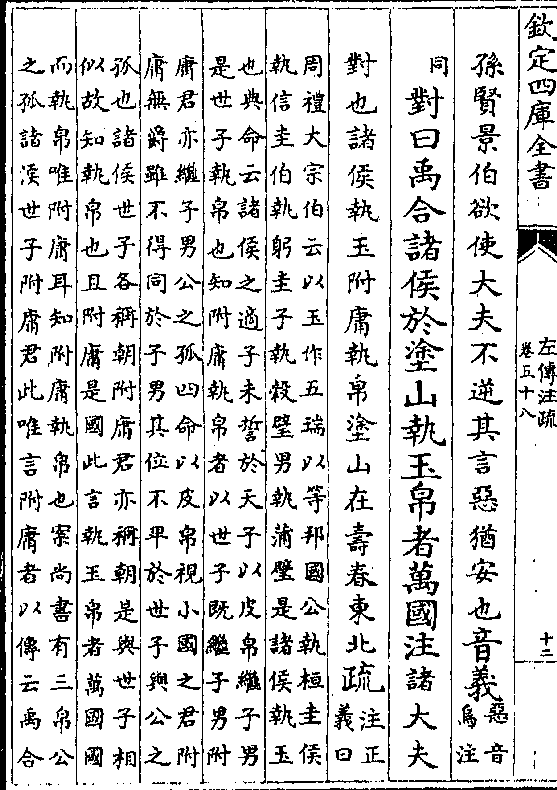 欽定四庫全書
左傳注疏
卷五十八
十三
孫賢景伯欲使大夫不逆其言惡猶安也音義惡音烏注
同對曰禹合諸侯於塗山執玉帛者萬國注諸大夫
對也諸侯執玉附庸執帛塗山在壽春東北疏注正義曰
周禮大宗伯云以玉作五瑞以等邦國公執桓圭侯
執信圭伯執躬圭子執穀璧男執蒲璧是諸侯執玉
也典命云諸侯之適子未誓於天子以皮帛繼子男
是世子執帛也知附庸執帛者以世子既繼子男附
庸君亦繼子男公之孤四命以皮帛視小國之君附
庸無爵雖不得同於子男其位不卑於世子與公之
孤也諸侯世子各稱朝附庸君亦稱朝是與世子相
似故知執帛也且附庸是國此言執玉帛者萬國國
而執帛唯附庸耳知附庸執帛也案尚書有三帛公
之孤諸侯世子附庸君此唯言附庸者以傳云禹合